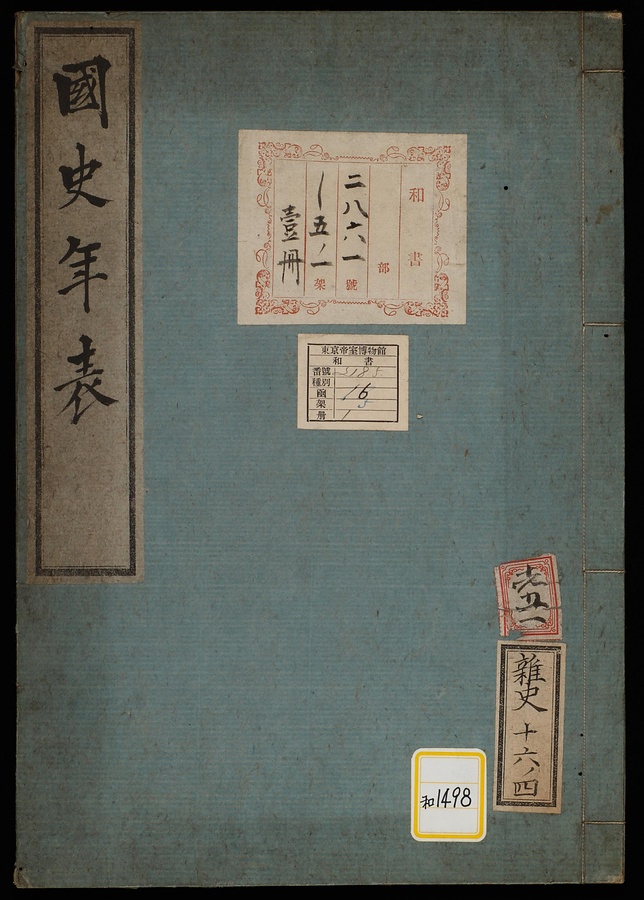 國史年表
和書
部
二八六一號
一五ノ一架
壹冊
東京帝室博物館
和書
番號 3185
種別
函 16
架 5
冊 1
五一
雜史 十六ノ四
和1498